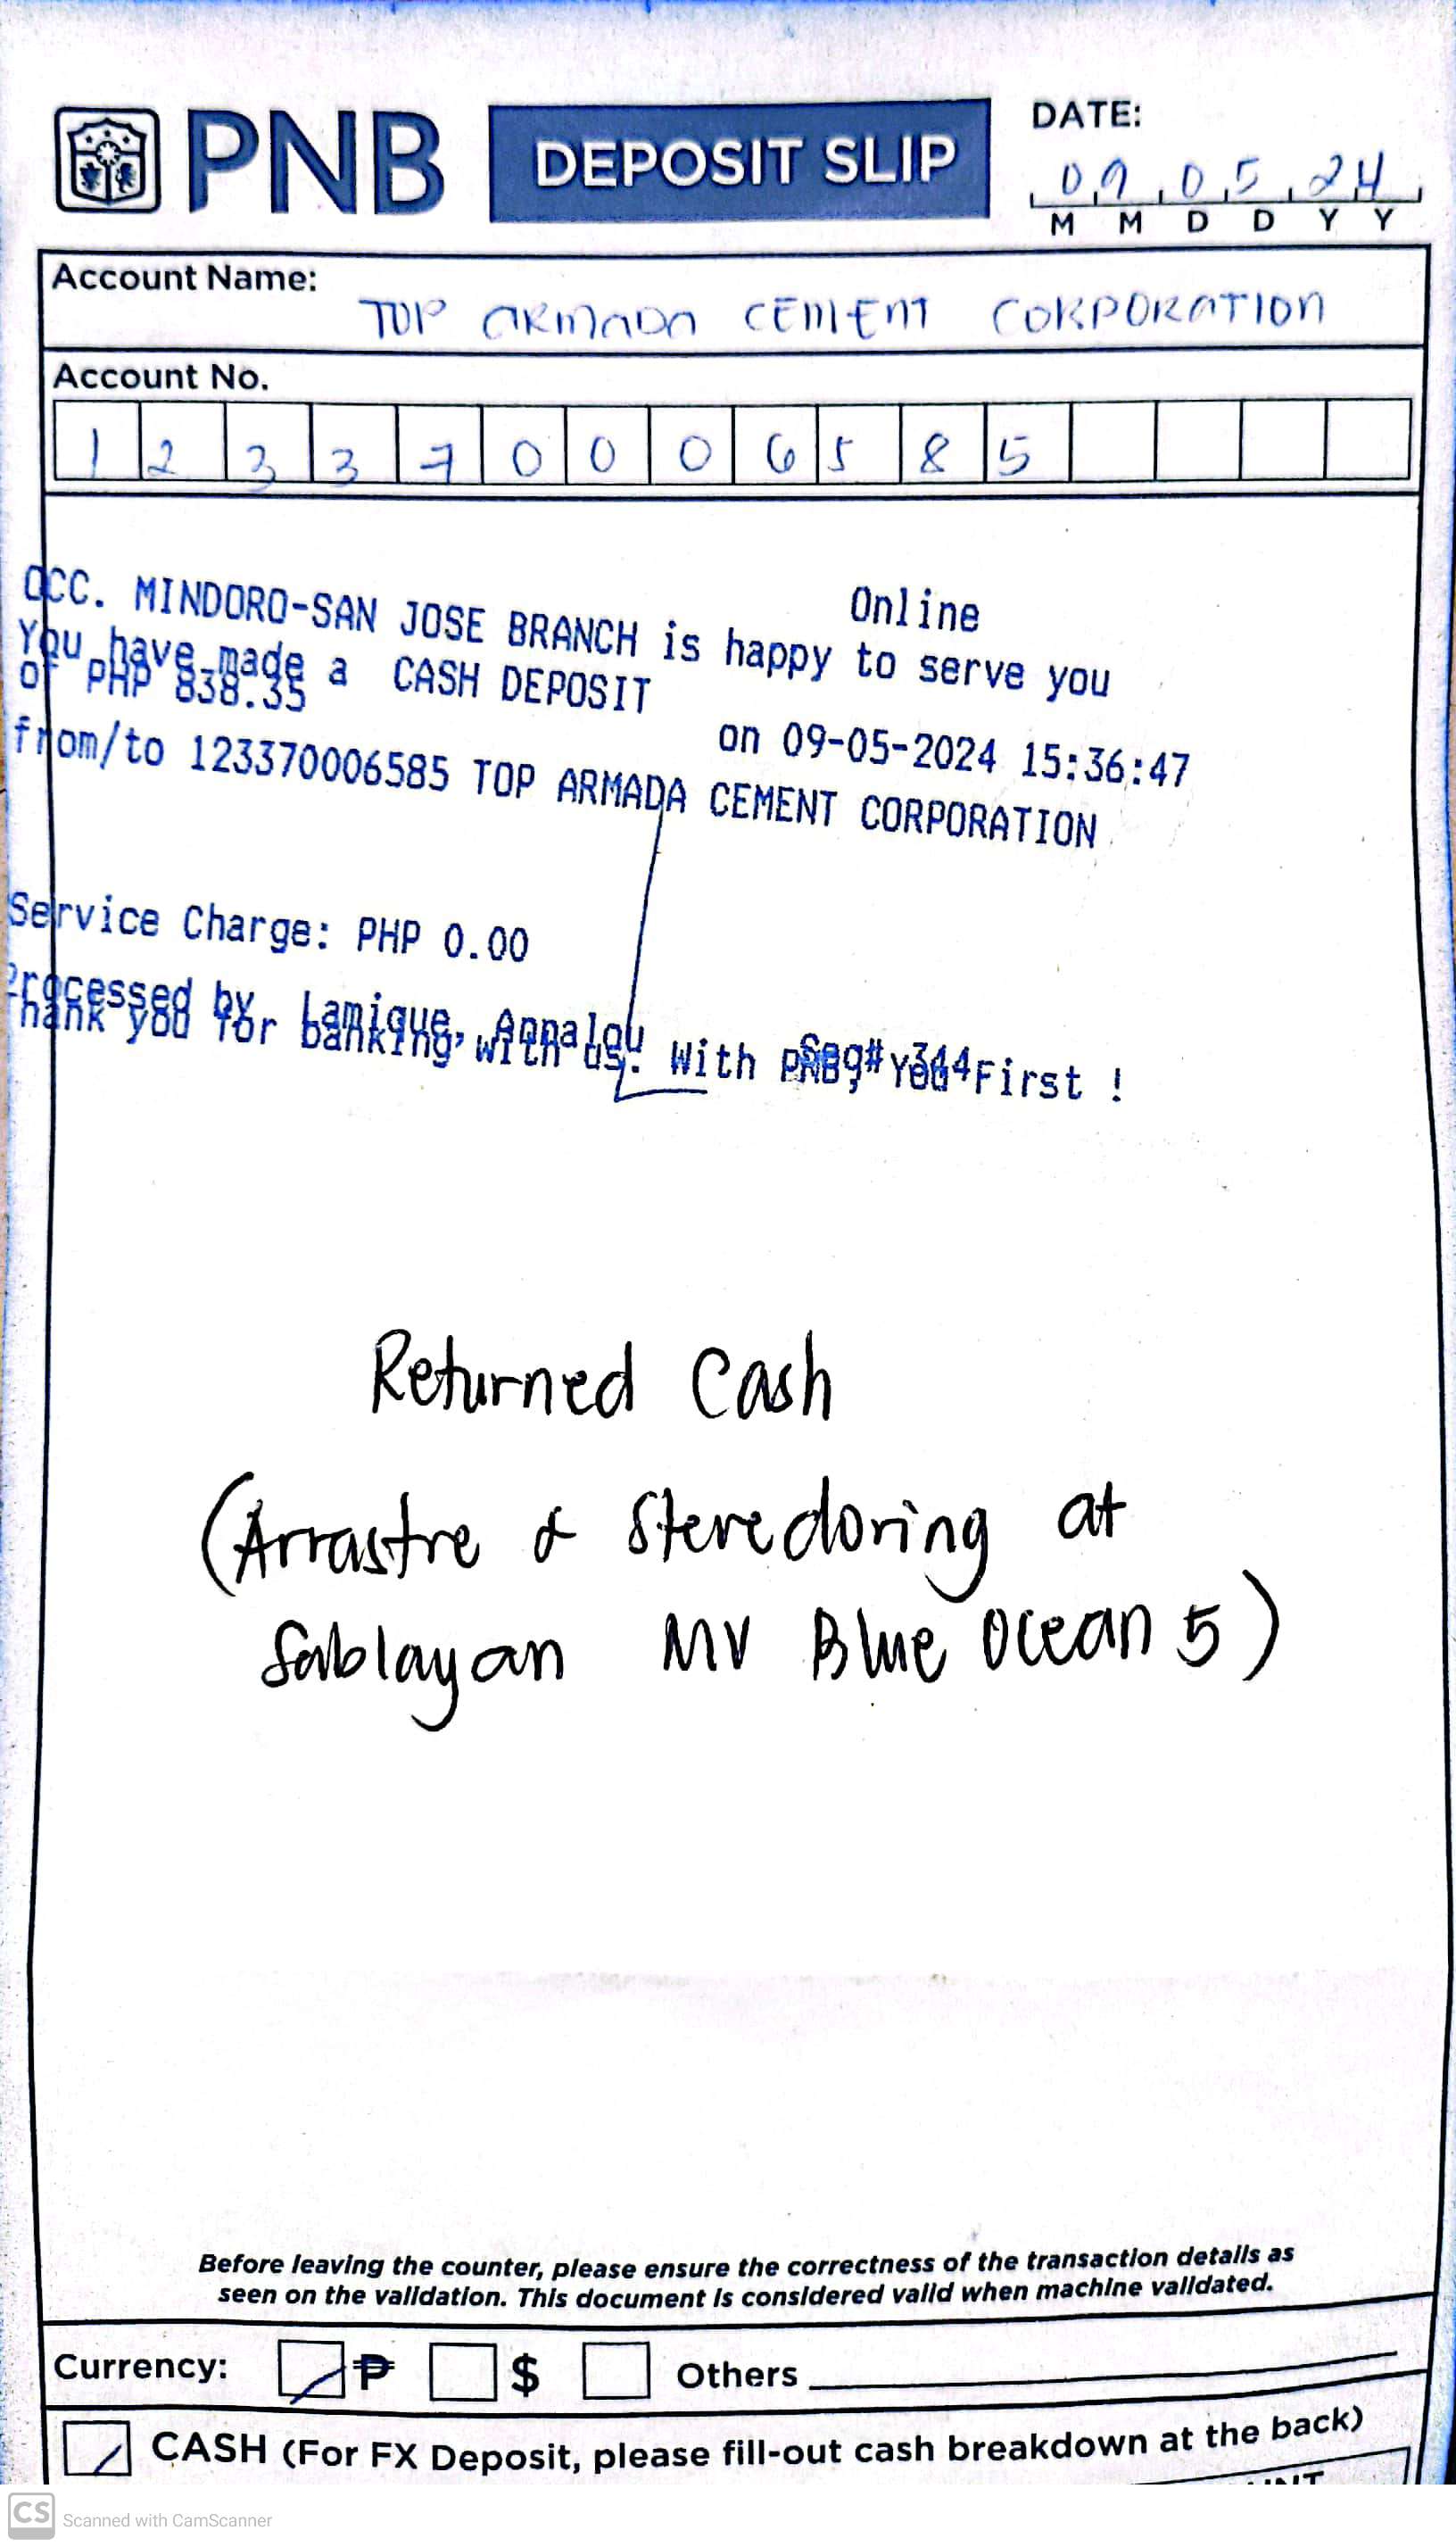 PNB DEPOSIT SLIP
DATE:
09 05 24
M M D D Y Y
Account Name:
TOP ARMADA CEMENT CORPORATION
Account No.
1 2 3 3 7 0 0 0 6 5 8 5
Online
OCC. MINDORO-SAN JOSE BRANCH is happy to serve you
You have made a CASH DEPOSIT
of PHP 838.35 on 09-05-2024 15:36:47
from/to 123370006585 TOP ARMADA CEMENT CORPORATION
Service Charge: PHP 0.00
Processed by Lamique, Annalou Seq# 344
Thank you for banking with us. With PNB, You First !
Returned Cash
(Arrastre & Stevedoring at
Sablayan MV Blue Ocean 5)
Before leaving the counter, please ensure the correctness of the transaction details as
seen on the validation. This document is considered valid when machine validated.
Currency: ₱ $ Others
CASH (For FX Deposit, please fill-out cash breakdown at the back)
CS Scanned with CamScanner